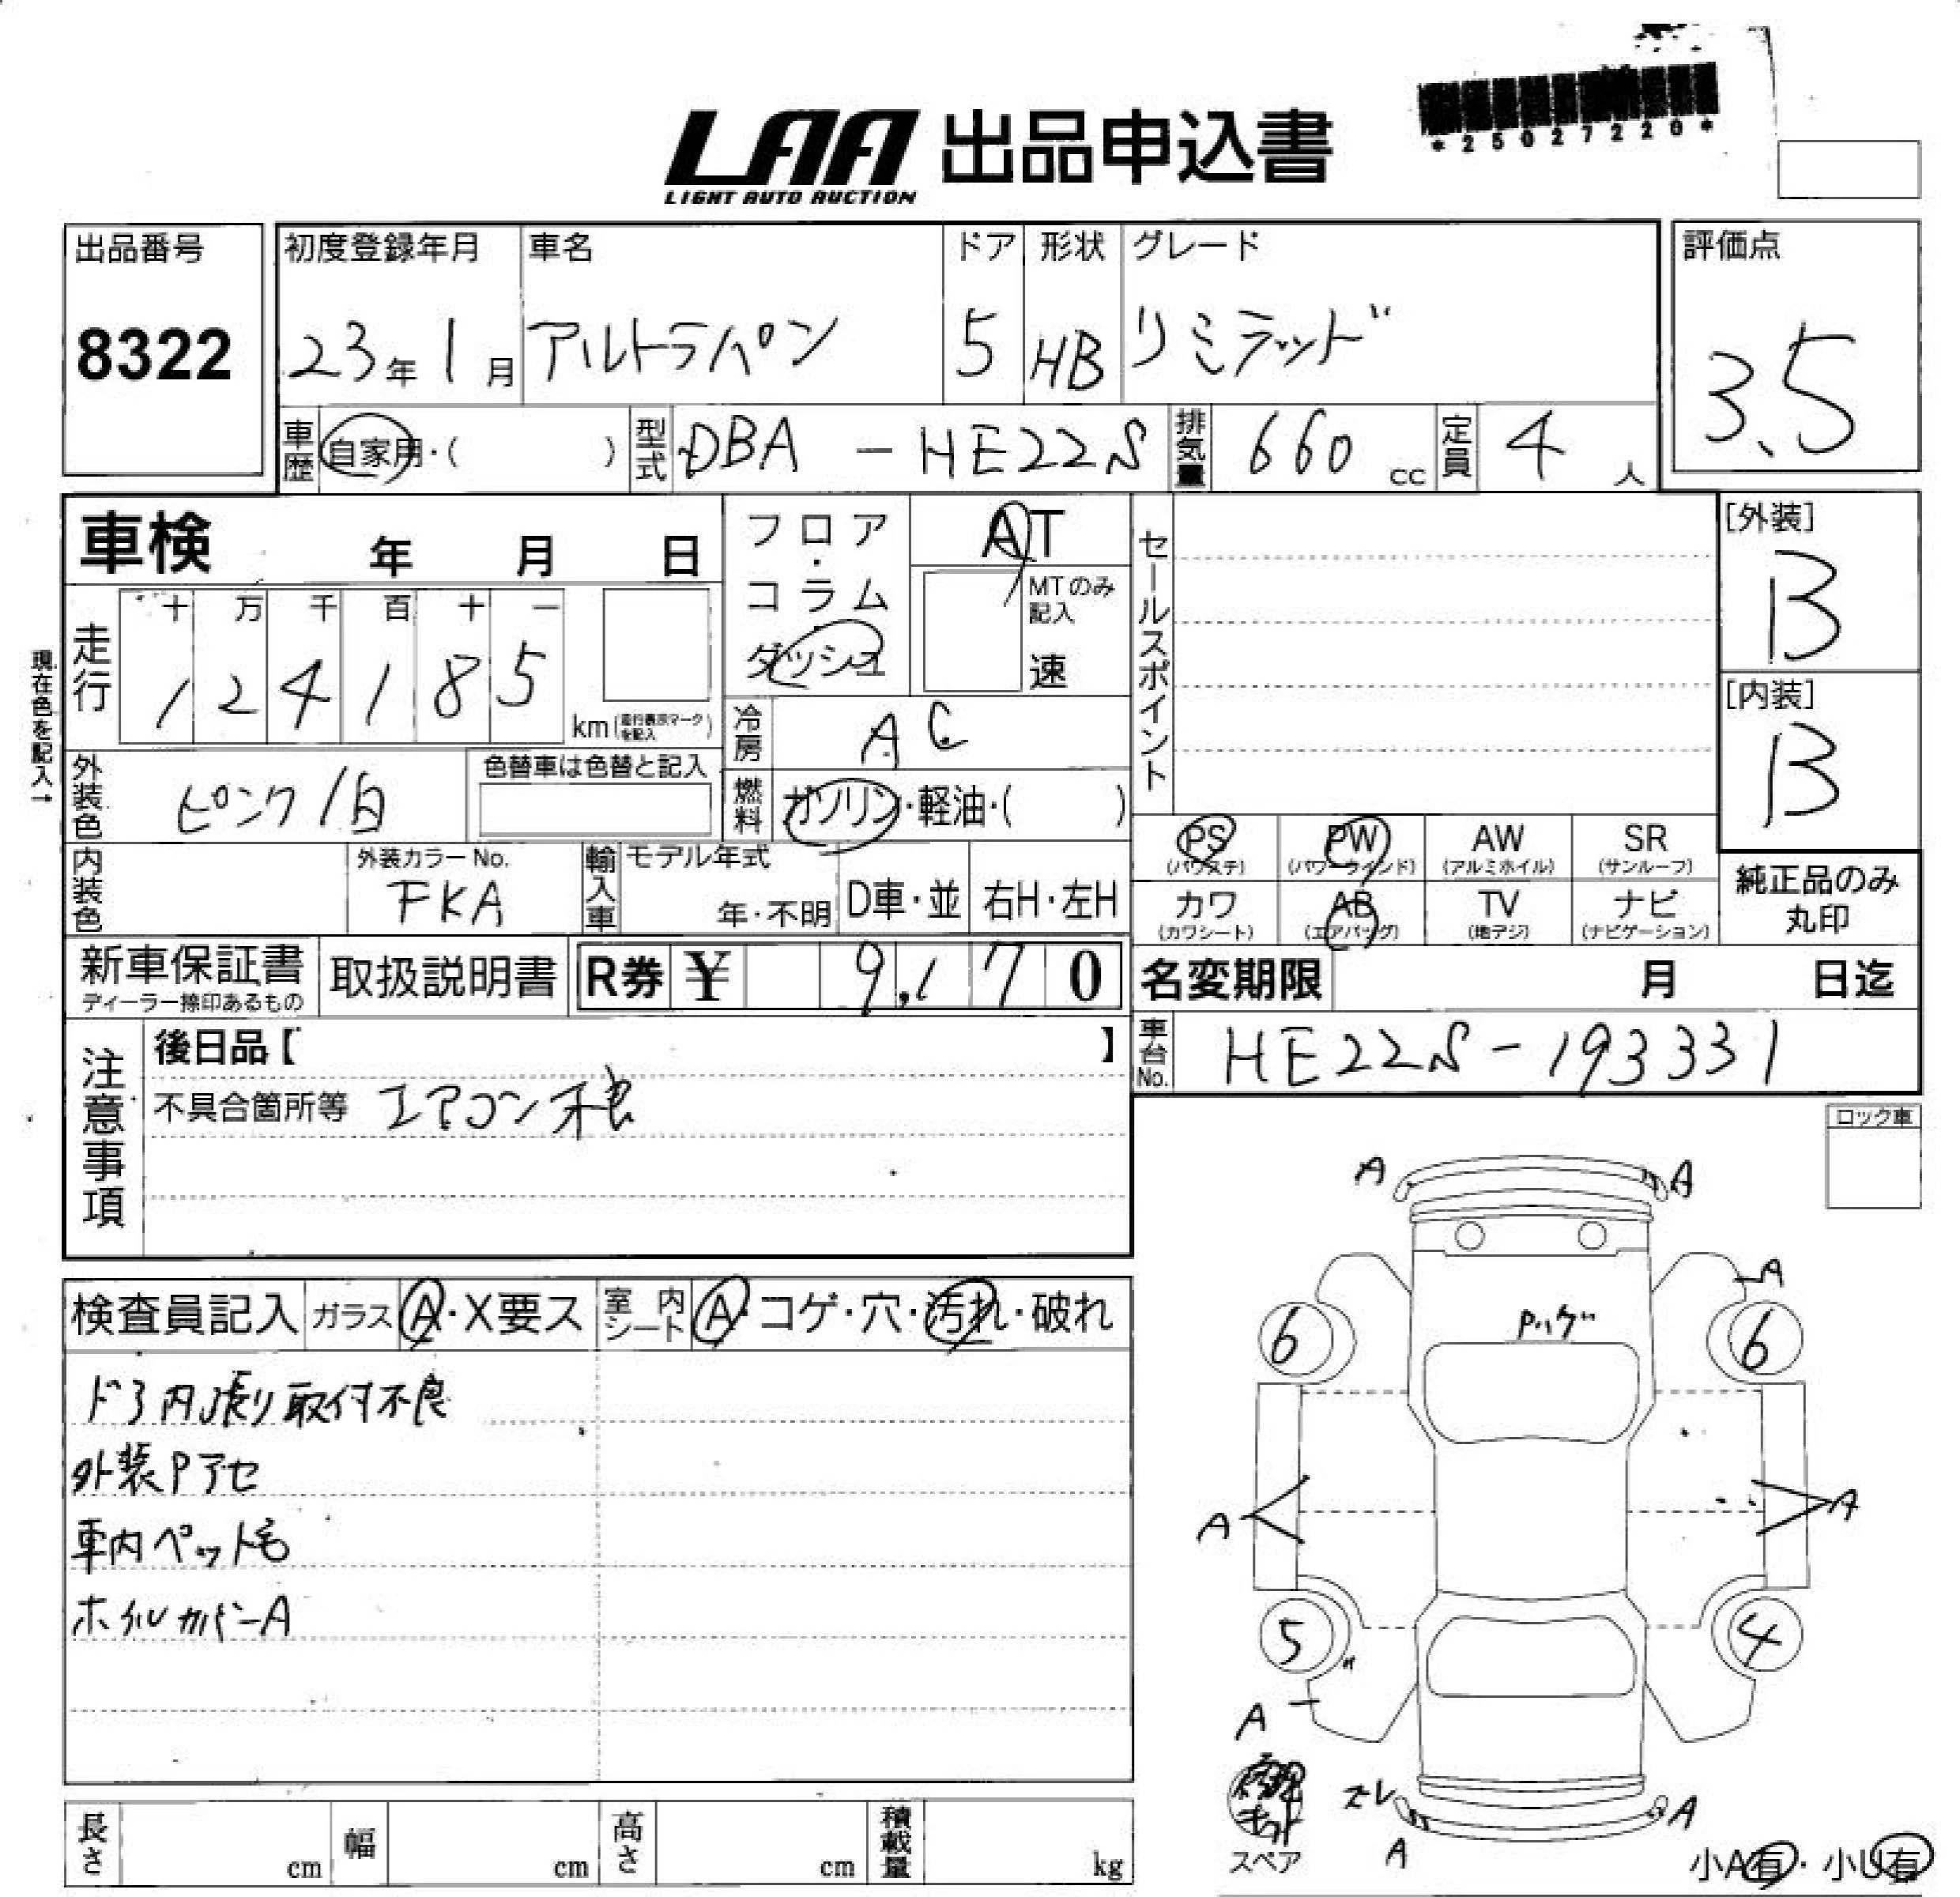 LAA 出品申込書
LIGHT AUTO AUCTION
*25027220*
出品番号
8322
初度登録年月
23年1月
車名
アルトラパン
ドア
5
形状
HB
グレード
リミテッド
評価点
3.5
車歴 自家用・( )
型式 DBA - HE22S
排気量 660 cc
定員 4 人
車検 年 月 日
フロア・コラム・ダッシュ
AT
MTのみ記入
速
セールスポイント
[外装]
B
[内装]
B
現在色を記入→
走行
十 万 千 百 十 一
1 2 4 1 8 5
km(走行表示マークを記入)
冷房 AC
外装色 ピンク/白
色替車は色替と記入
燃料 ガソリン・軽油・( )
PS (パワステ)
PW (パワーウインド)
AW (アルミホイル)
SR (サンルーフ)
内装色
外装カラーNo.
FKA
輸入車
モデル年式
年・不明
D車・並
右H・左H
カワ (カワシート)
AB (エアバッグ)
TV (地デジ)
ナビ (ナビゲーション)
純正品のみ
丸印
新車保証書
ディーラー捺印あるもの
取扱説明書
R券 ¥ 9,170
名変期限 月 日迄
車台No. HE22S-193331
注意事項
後日品【 】
不具合箇所等 エアコン不良
ロック車
検査員記入
ガラス A・X要ス
室内シート A・コゲ・穴・汚れ・破れ
ドア内張り取付不良
外装Pアセ
車内ペット毛
ホイルカバーA
A A
A
Pハゲ
6 6
A A
5 4
A
ズレ
A
A
スペア
小A有・小U有
長さ cm
幅 cm
高さ cm
積載量 kg